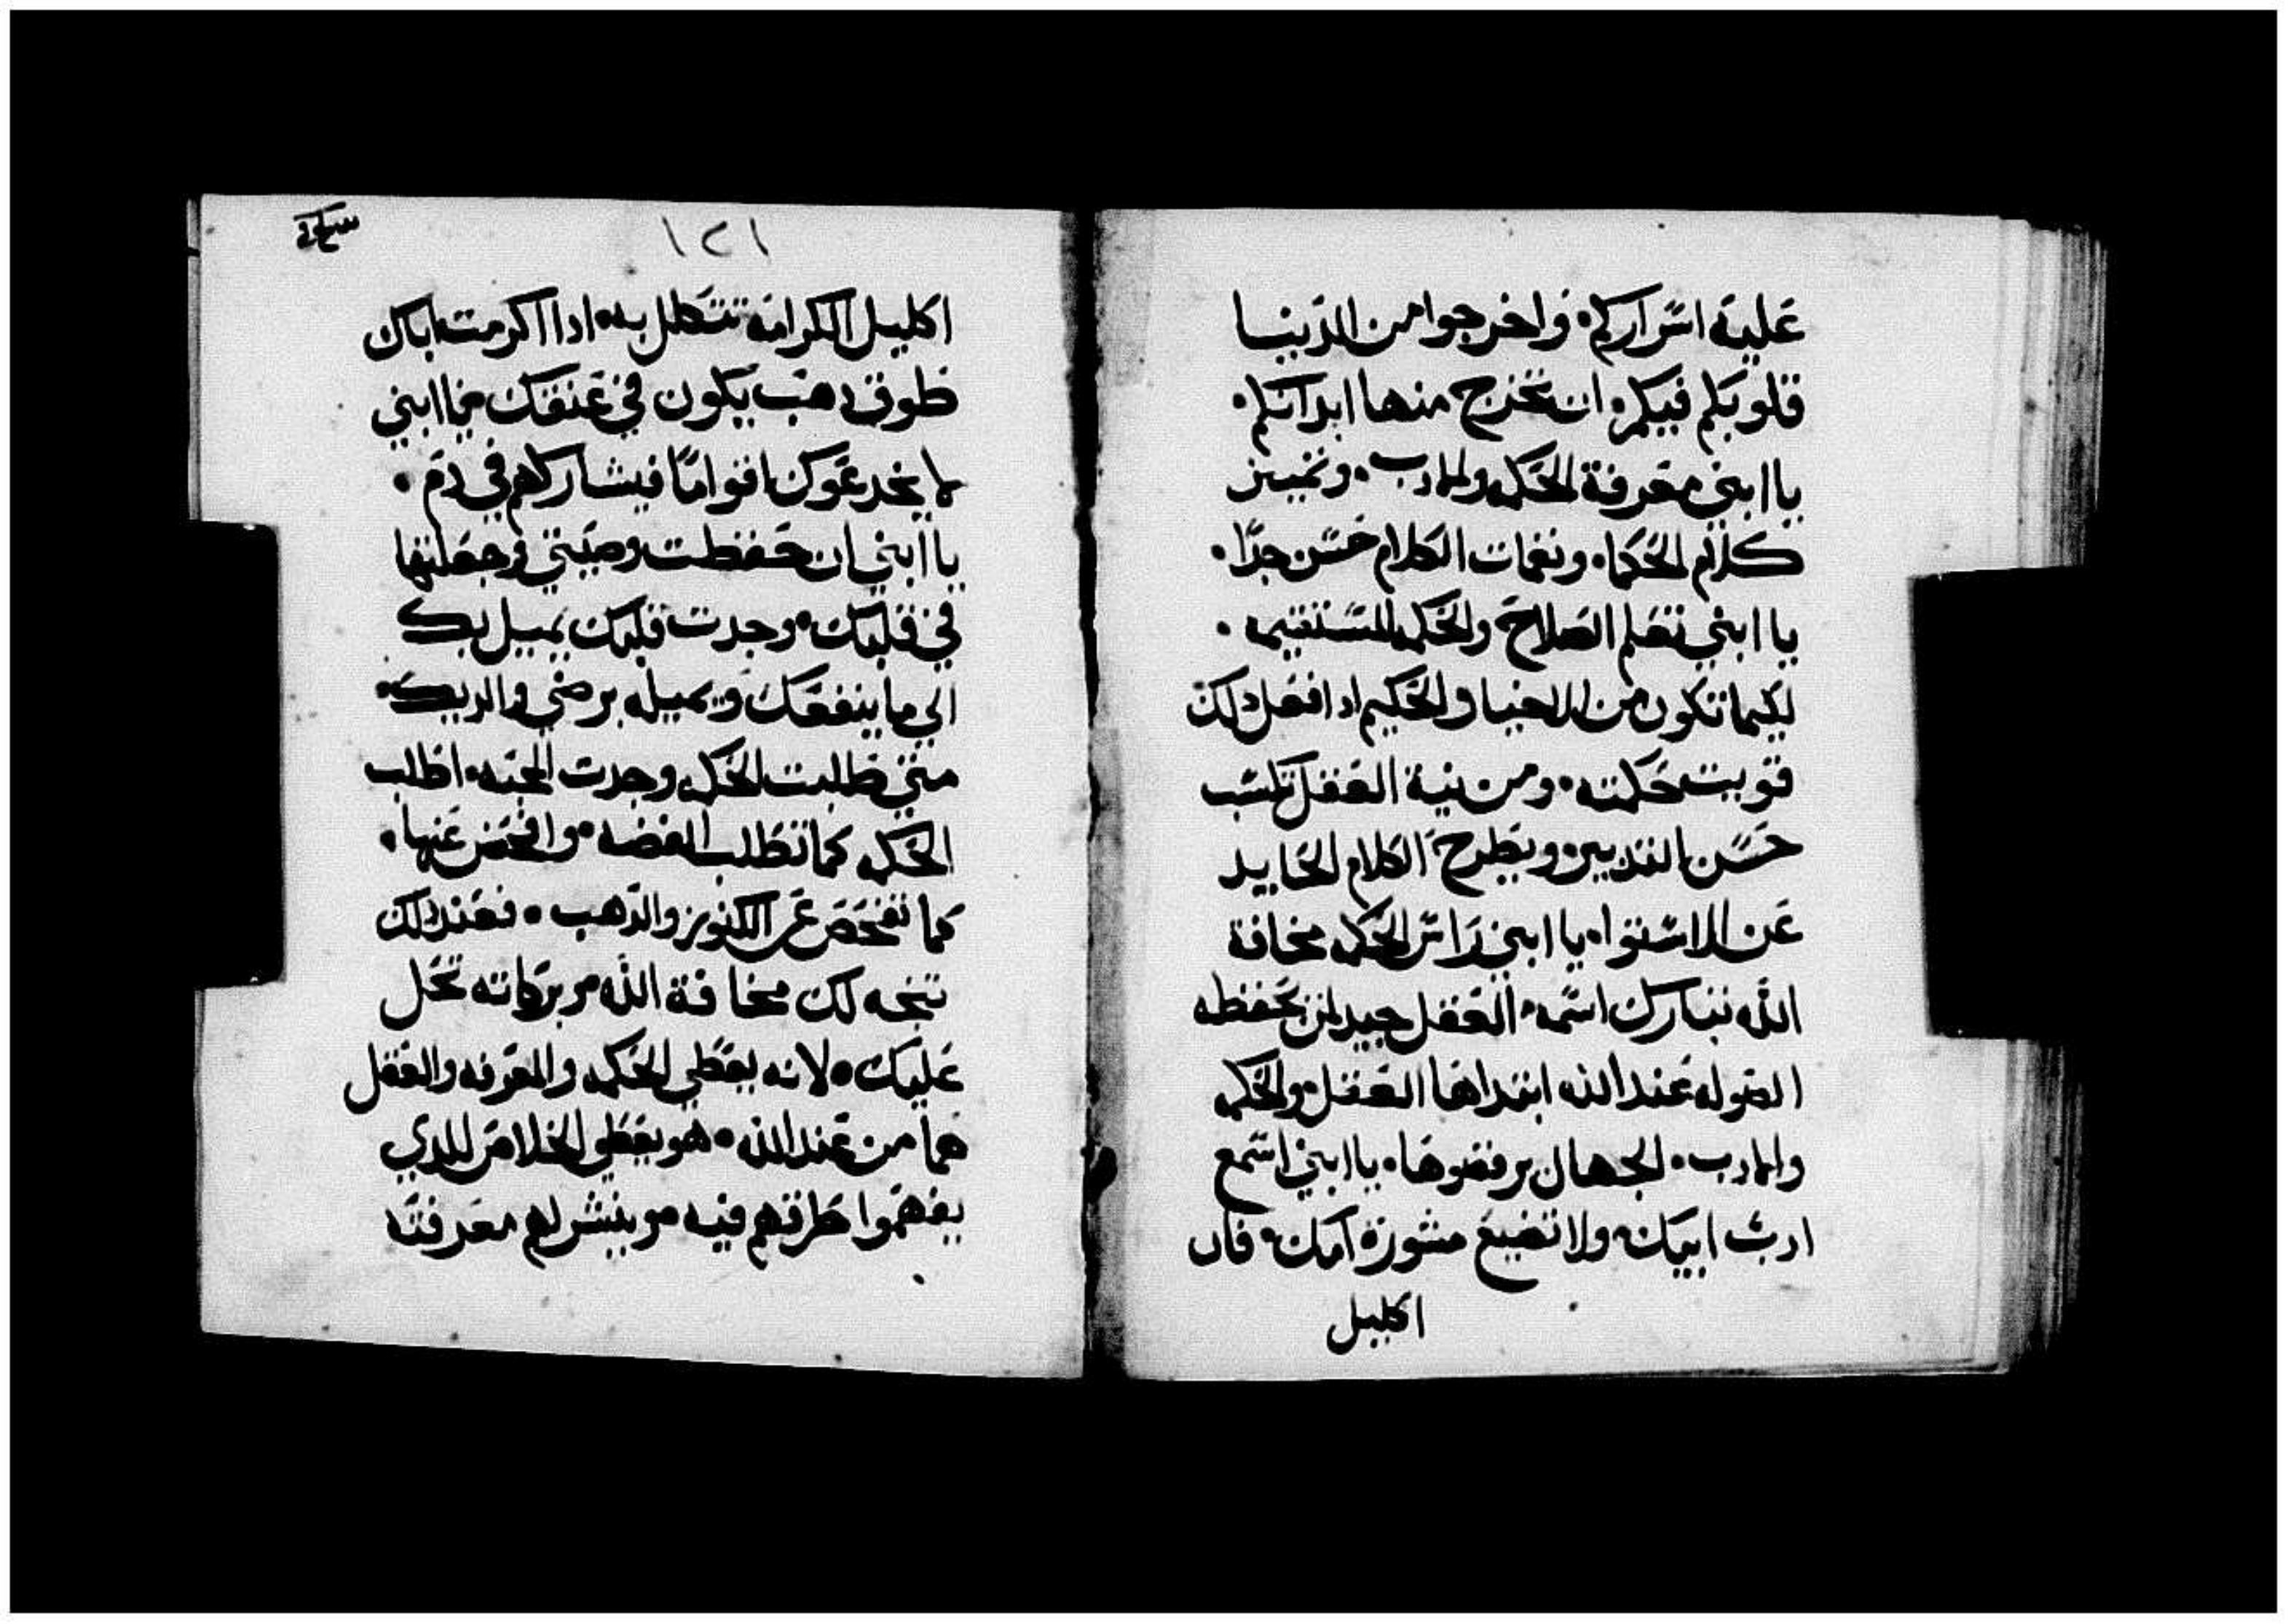 عليه اسراركم. واخرجوا من الدنيا
قلوبكم فيكم. ان تخرج منها ابدانكم.
يا ابني معرفة الحكمه والادب. وتمييز
كلام الحكما. ونغمات الكلام حسن جدا.
يا ابني تعلم الصلاح والحكمه المستقيمه.
لكيما تكون من الاحيا والحكيم ادا فعل دلك
قويت حكمته. ومن نية العقل تكتسب
حسن التدبير. ويطرح الكلام الحايد
عن الاستوا. يا ابني راس الحكمه مخافة
الله تبارك اسمه. العقل جيد لمن يحفظه
عند الله ابتداها العقل. والحكمه
والادب. الجهال يرفضوها. يا ابني اسمع
ادب ابيك. ولا تضيع مشورة امك. فان
اكليل
١٢١
اكليل الكرامه تتكلل به. ادا اكرمت اباك
طوق دهب يكون في عنقك. يا ابني
لا يخدعوك اقواما فيشاركهم في دم.
يا ابني ان حفظت وصيتي وجعلتها
في قلبك. وجدت قلبك يميل بك
الي ما ينفعك ويميله برضي والديك.
متي طلبت الحكمه وجدت اطلب
الحكمه كما تطلب الفضه. وافحص عنها.
كما تفحص عن الكنوز والدهب. فعند دلك
تتجه لك مخافة الله من بركاته تحل
عليك. لانه يعطي الحكمه والمعرفه والعقل
هما من عند الله. هو يعطي الخلاص للدي
يفهموا طرقهم فيه من ينشر لهم معرفته